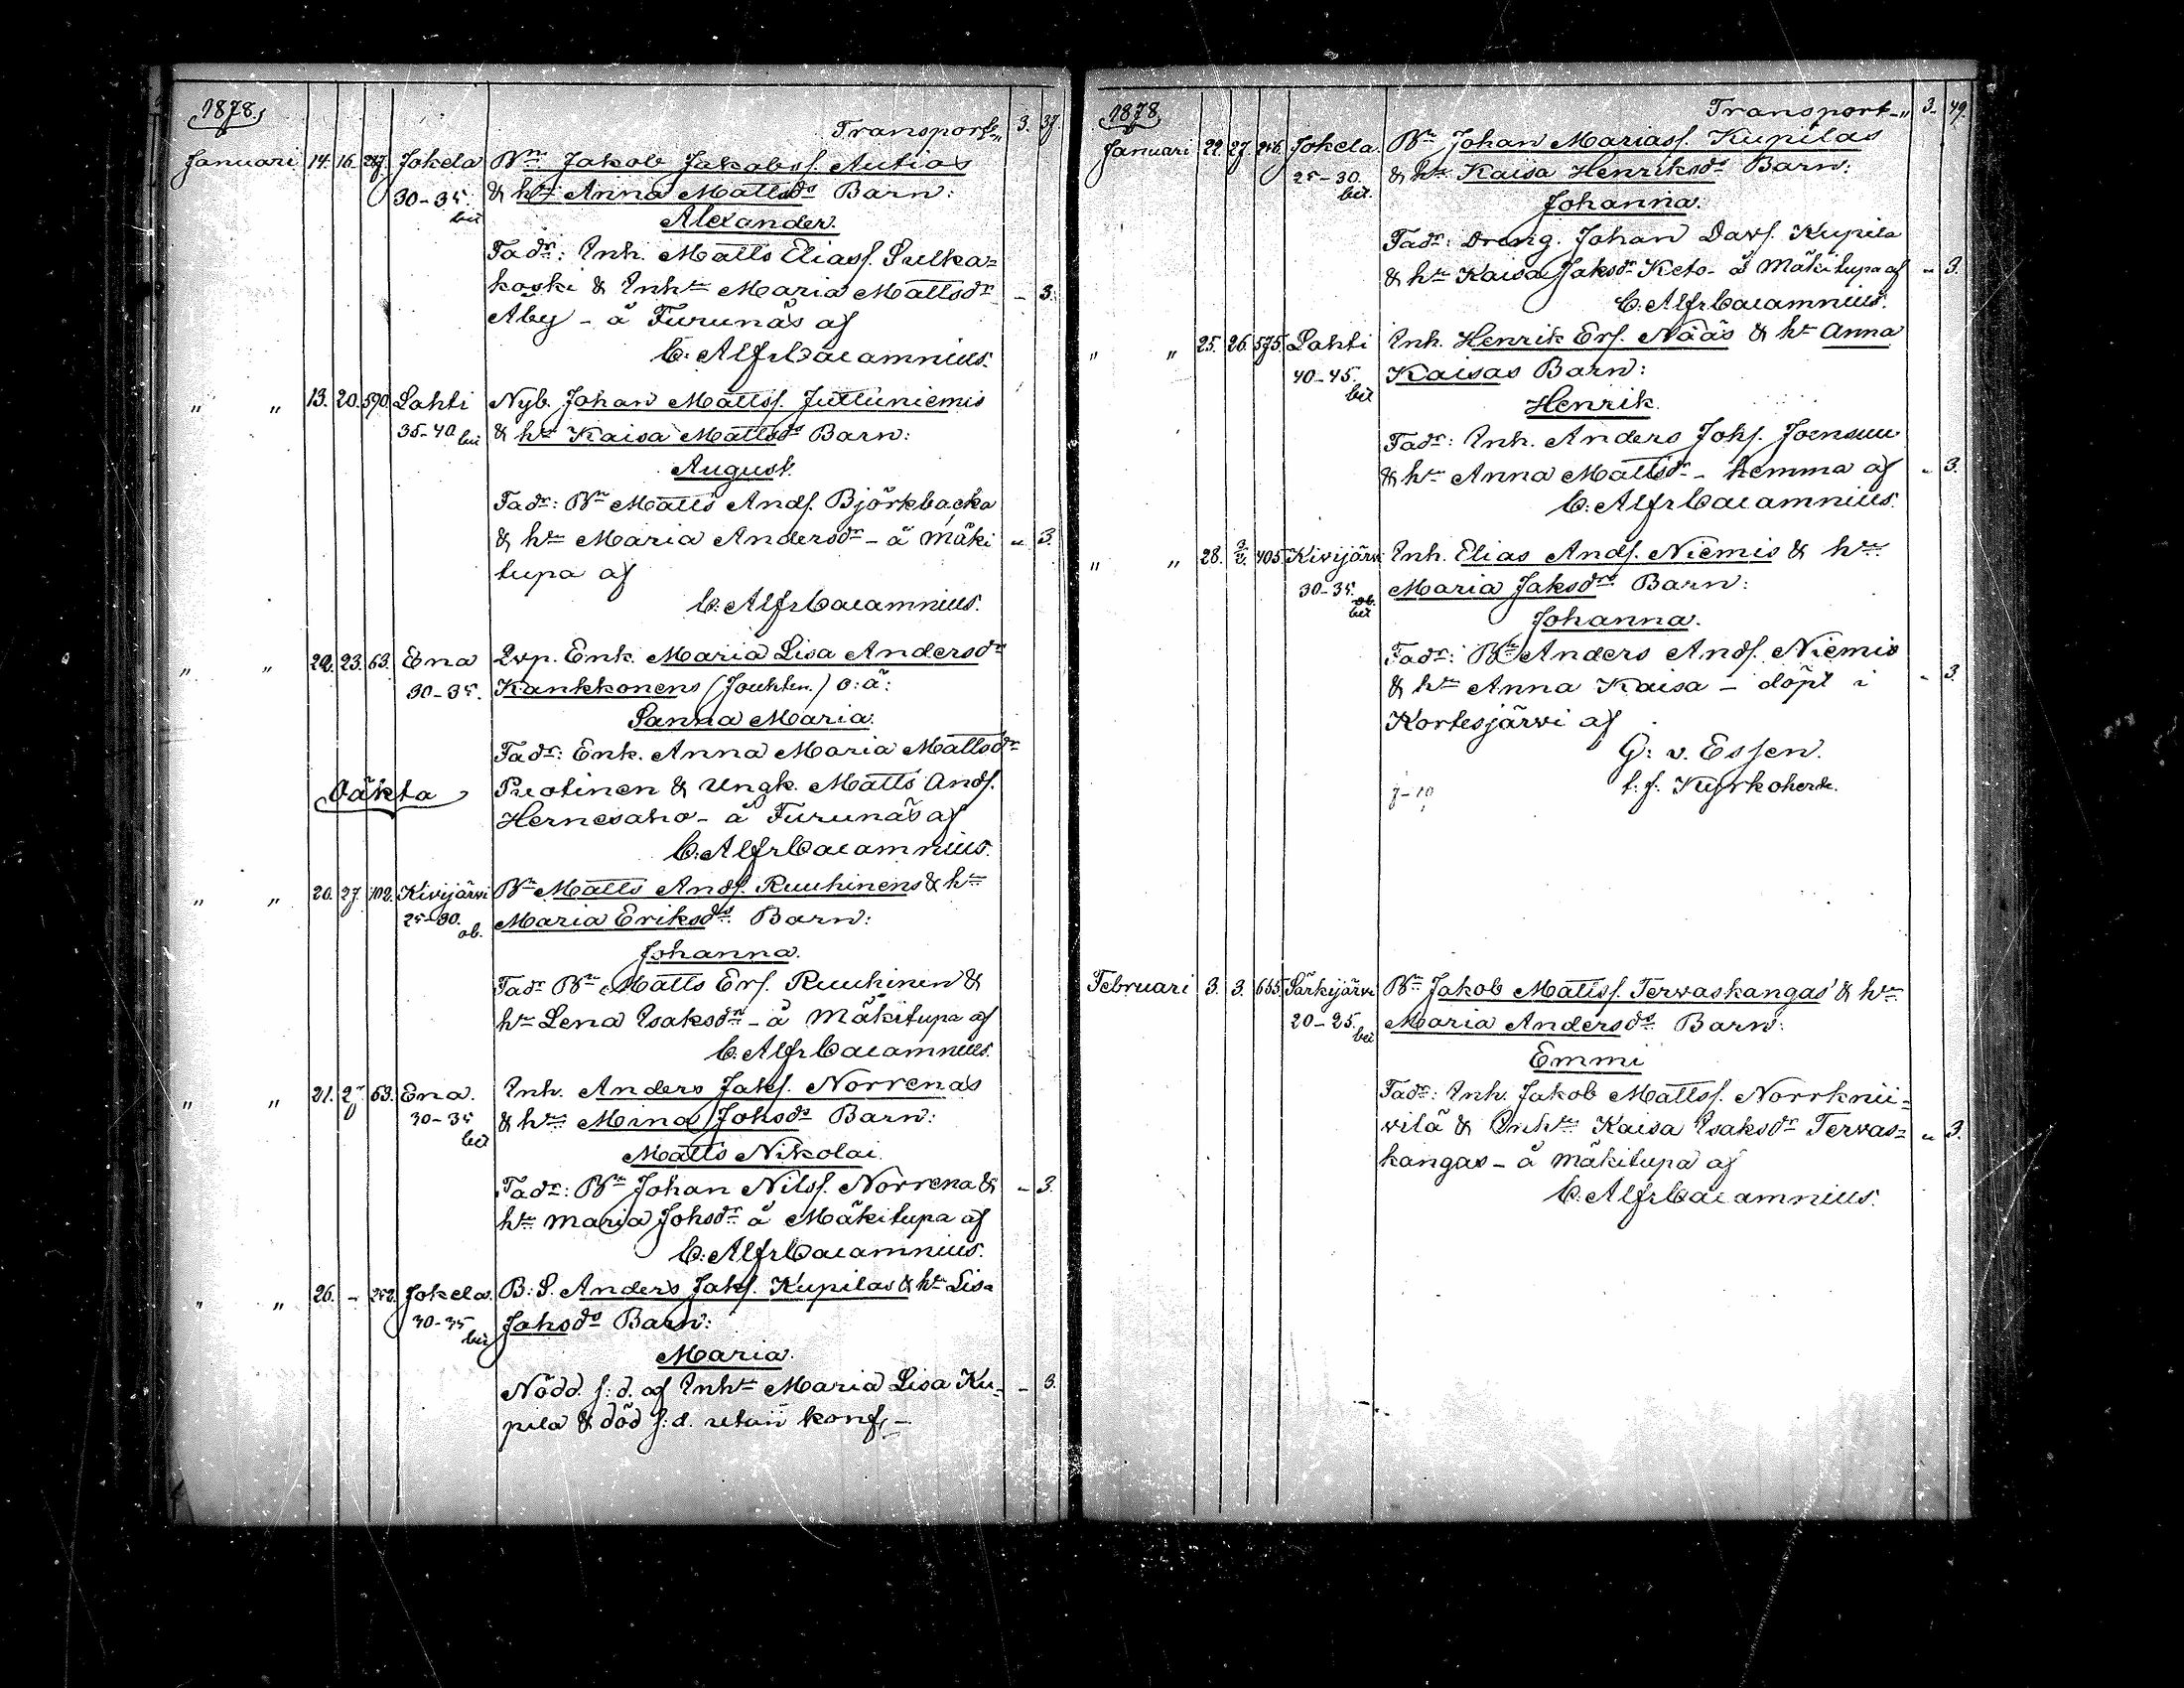 1878.
Transport „ 3. 37.
Januari 14. 16. 287. Jokela Bn Jakob Jakobss. Autios
30-35. bet & hu Anna Mattsds Barn:
Alexander.
Fadr: Inh. Matts Eliass. Sulka=
koski & Inhn Maria Mattsdr - 3.
Åby - å Furunäs af
C: Alfr Cajamnius.
„ „ 13. 20. 590. Lahti Nyb. Johan Mattss. Juttuniemis
35-40 bet & hu Kaisa Mattsds Barn:
August.
Fadr: Bn Matts Ands. Björkbacka
& hu Maria Andersdr - å Mäki „ 3.
tupa af
C: Alfr Cajamnius.
„ „ 22. 23. 63. Ena Qvp. Enk. Maria Lisa Andersdr
30-35. Kankkonens (Jouhten.) o: ä:
Sanna Maria.
Fadr: Enk. Anna Maria Mattsdr
Oäkta Puotinen & Ungk. Matts Ands.
Hernesaho - å Furunäs af
C: Alfr Cajamnius.
„ „ 20. 27. 102. Kivijärvi Bn Matts Ands. Ruuhinens & hu
25-30. ob. Maria Eriksds Barn:
Johanna.
Fadr Bn Matts Ers. Ruuhinen &
hu Lena Isaksdr - å Mäkitupa af
C: Alfr Cajamnius.
„ „ 21. 27 63. Ena. Inh. Anders Jaks. Norrenas
30-35 bet & hu Mina Johsds Barn:
Matts Nikolai.
Fadr: Bn Johan Nilss. Norrena & - 3.
hu Maria Johsdr å Mäkitupa af
C: Alfr Cajamnius.
„ „ 26. - 252. Jokela. B: S. Anders Jaks. Kupilas & hu Lisa
30-35 bet Jaksds Barn:
Maria.
Nödd. s: d. af Inhn Maria Lisa Ku- - 3.
pila & död s: d. utan konf. -
1878
Transport - „ 3. 49.
Januari 22. 27. 256. Jokela. Bn Johan Mariass. Kupilas
25-30. bet. & hu Kaisa Henriksds Barn:
Johanna.
Fadr: Dreng. Johan Davs. Kupila
& hu Kaisa Jaksdr Keto - å Mäkitupa af - 3.
C: Alfr Cajamnius.
„ „ 25. 26. 575. Lahti Inh. Henrik Ers. Nääs & hu Anna
40-45. bet Kaisas Barn:
Henrik.
Fadr: Inh. Anders Johs. Joensuu
& hu Anna Mattsdr - hemma af - 3.
C: Alfr Cajamnius.
„ „ 28. 3/2. 405. Kivijärvi Inh. Elias Ands. Niemis & hu
30-35. ob. bet Maria Jaksds Barn:
Johanna.
Fadr: Bn Anders Ands. Niemis
& hu Anna Kaisa - döpt i - 3.
Kortesjärvi af
G: v. Essen.
t. f. Kyrkoherde.
7-10
Februari 3. 3. 655. Särkijärvi Bn Jakob Mattss. Tervaskangas & hu
20-25. bet Maria Andersds Barn:
Emmi
Fadr: Inh. Jakob Mattss. Norrknii-
vilä & Inhn Kaisa Isaksdr Tervas= „ 3.
kangas - å Mäkitupa af
C: Alfr Cajamnius.